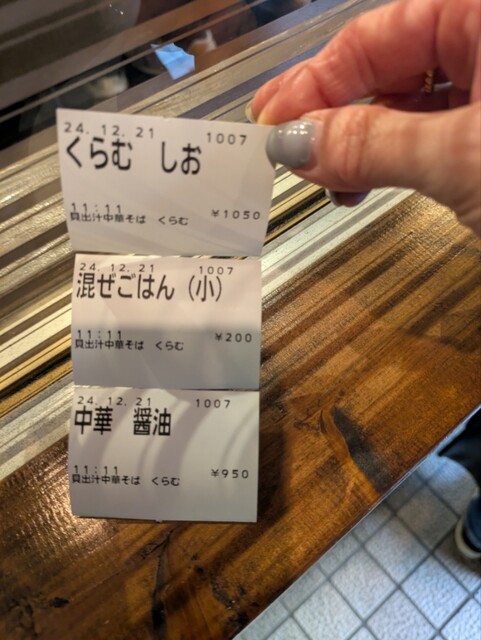 24.12.21 1007
くらむ しお
11:11 ¥1050
貝出汁中華そば くらむ
24.12.21 1007
混ぜごはん（小）
11:11 ¥200
貝出汁中華そば くらむ
24.12.21 1007
中華 醤油
11:11 ¥950
貝出汁中華そば くらむ